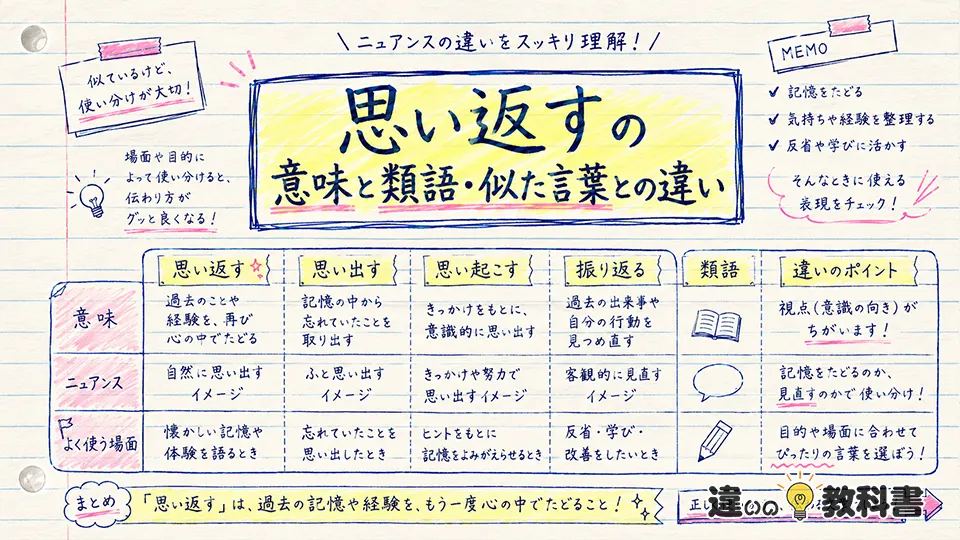 似ているけど、
使い分けが大切！
\ ニュアンスの違いをスッキリ理解！ /
MEMO
✔ 記憶をたどる
✔ 気持ちや経験を整理する
✔ 反省や学びに活かす
そんなときに使える
表現をチェック！
場面や目的に
よって使い分けると、
伝わり方が
グッと良くなる！
思い返すの
意味と類語・似た言葉との違い
思い返す
思い出す
思い起こす
振り返る
類語
違いのポイント
意味
過去のことや
経験を、再び
心の中でたどる
記憶の中から
忘れていたことを
取り出す
きっかけをもとに、
意識的に思い出す
過去の出来事や
自分の行動を
見つめ直す
視点（意識の向き）が
ちがいます！
ニュアンス
自然に思い出す
イメージ
ふと思い出す
イメージ
きっかけや努力で
思い出すイメージ
客観的に見直す
イメージ
記憶をたどるのか、
見直すのかで使い分け！
よく使う場面
懐かしい記憶や
体験を語るとき
忘れていたことを
思い出したとき
ヒントをもとに
記憶をよみがえらせるとき
反省・学び・
改善をしたいとき
目的や場面に合わせて
ぴったりの言葉を選ぼう！
まとめ
「思い返す」は、過去の記憶や経験を、もう一度心の中でたどること！
違いの教科書